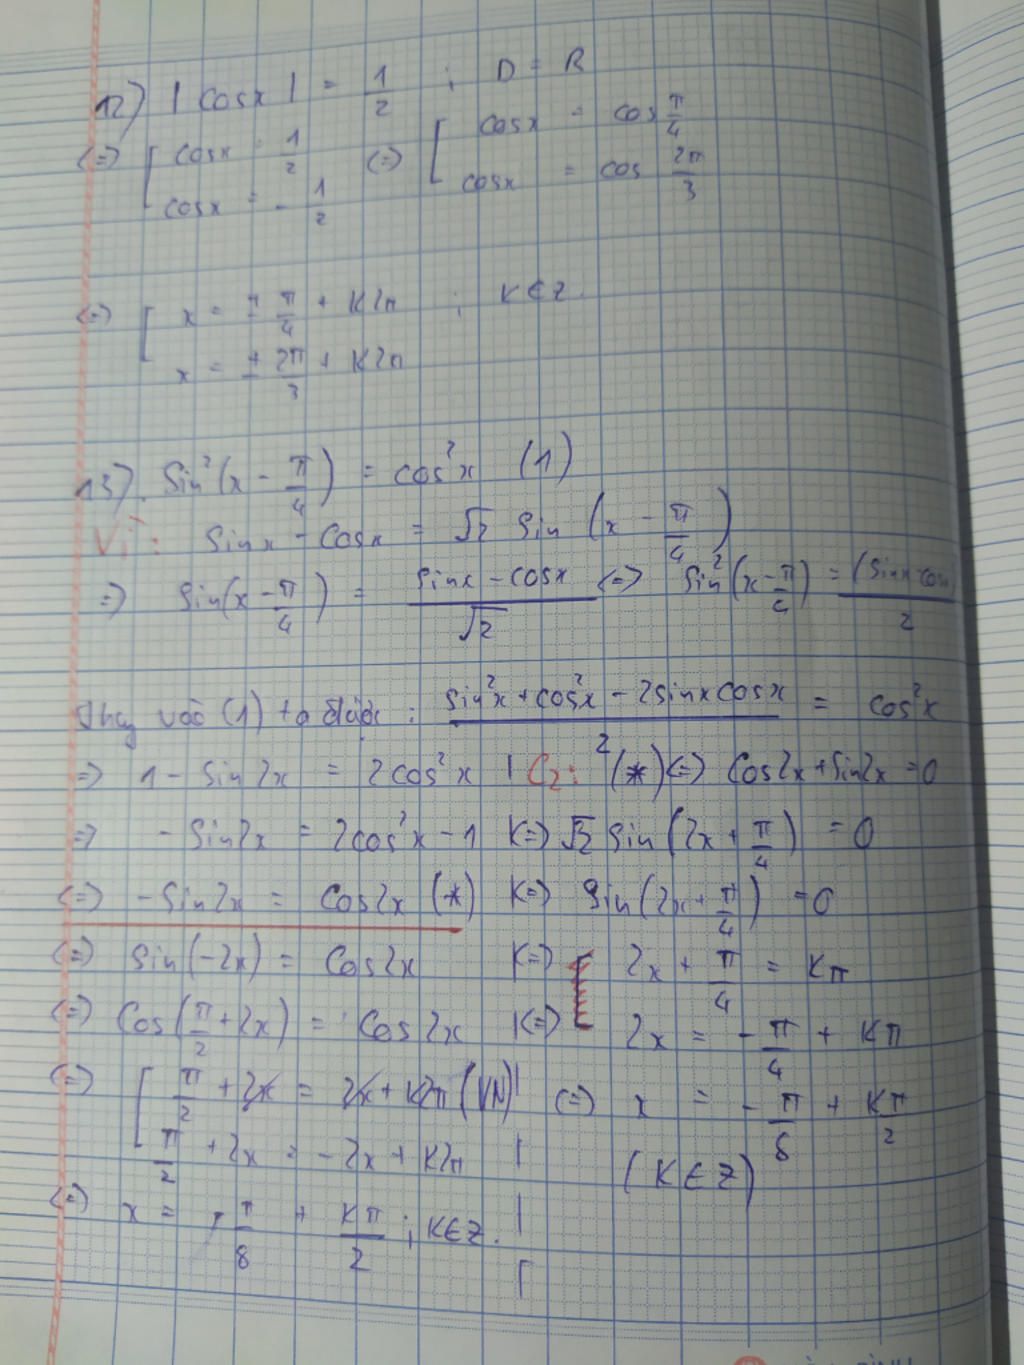 12) |cosx| = 1/2 ; D = R
(=) [ cosx = 1/2 (=) [ cosx = cos π/4
cosx = -1/2 cosx = cos 2π/3
(=) [ x = ± π/4 + K2π ; K∈Z.
x = ± 2π/3 + K2π
13). Sin²(x - π/4) = cos²x (1)
Vì: Sinx - Cosx = √2 Sin (x - π/4)
=> Sin(x - π/4) = (sinx - cosx)/√2 (=) Sin²(x - π/4) = (Sinx-cosx)/2
Thay vào (1) ta được: (sin²x + cos²x - 2sinxcosx)/2 = cos²x
=> 1 - Sin2x = 2cos²x | C2: (*) (=) Cos2x + Sin2x = 0
=> - Sin2x = 2cos²x - 1 (=) √2 Sin (2x + π/4) = 0
(=) - Sin2x = Cos2x (*) (=) Sin(2x + π/4) = 0
(=) Sin(-2x) = Cos2x (=) 2x + π/4 = Kπ
(=) Cos(π/2 + 2x) = Cos2x (=) 2x = - π/4 + Kπ
(=) [ π/2 + 2x = 2x + K2π (VN) | (=) x = - π/8 + Kπ/2
π/2 + 2x = -2x + K2π | (K∈Z)
(=) x = - π/8 + Kπ/2 ; K∈Z. |